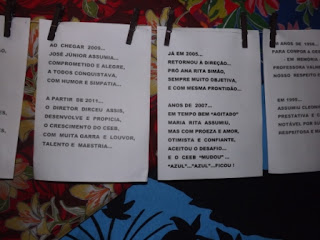 AO CHEGAR 2005...
JOSÉ JÚNIOR ASSUMIU...
COMPROMETIDO E ALEGRE,
A TODOS CONQUISTAVA,
COM HUMOR E SIMPATIA...
A PARTIR DE 2011...
O DIRETOR DIRCEU ASSIS,
DESENVOLVE E PROPICIA,
O CRESCIMENTO DO CEEB,
COM MUITA GARRA E LOUVOR,
TALENTO E MAESTRIA...
JÁ EM 2005...
RETORNOU A DIREÇÃO...
PRÓ ANA RITA SIMÃO,
SEMPRE MUITO OBJETIVA,
E COM MESMA PRONTIDÃO...
ANOS DE 2007...
EM TEMPO BEM "AGITADO"
MARIA RITA ASSUMIU,
MAS COM PROEZA E AMOR,
OTIMISTA E CONFIANTE,
ACEITOU O DESAFIO...
E O CEEB "MUDOU" ...
"AZUL"..."AZUL"...FICOU !
ANOS DE
PARA COMPOR A
EM MEMÓRIA
PROFESSORA
NOSSO RESPEITO
EM
ASSUMIU
PRESTATIVA E
NOTÁVEL POR
RESPEITOSA E